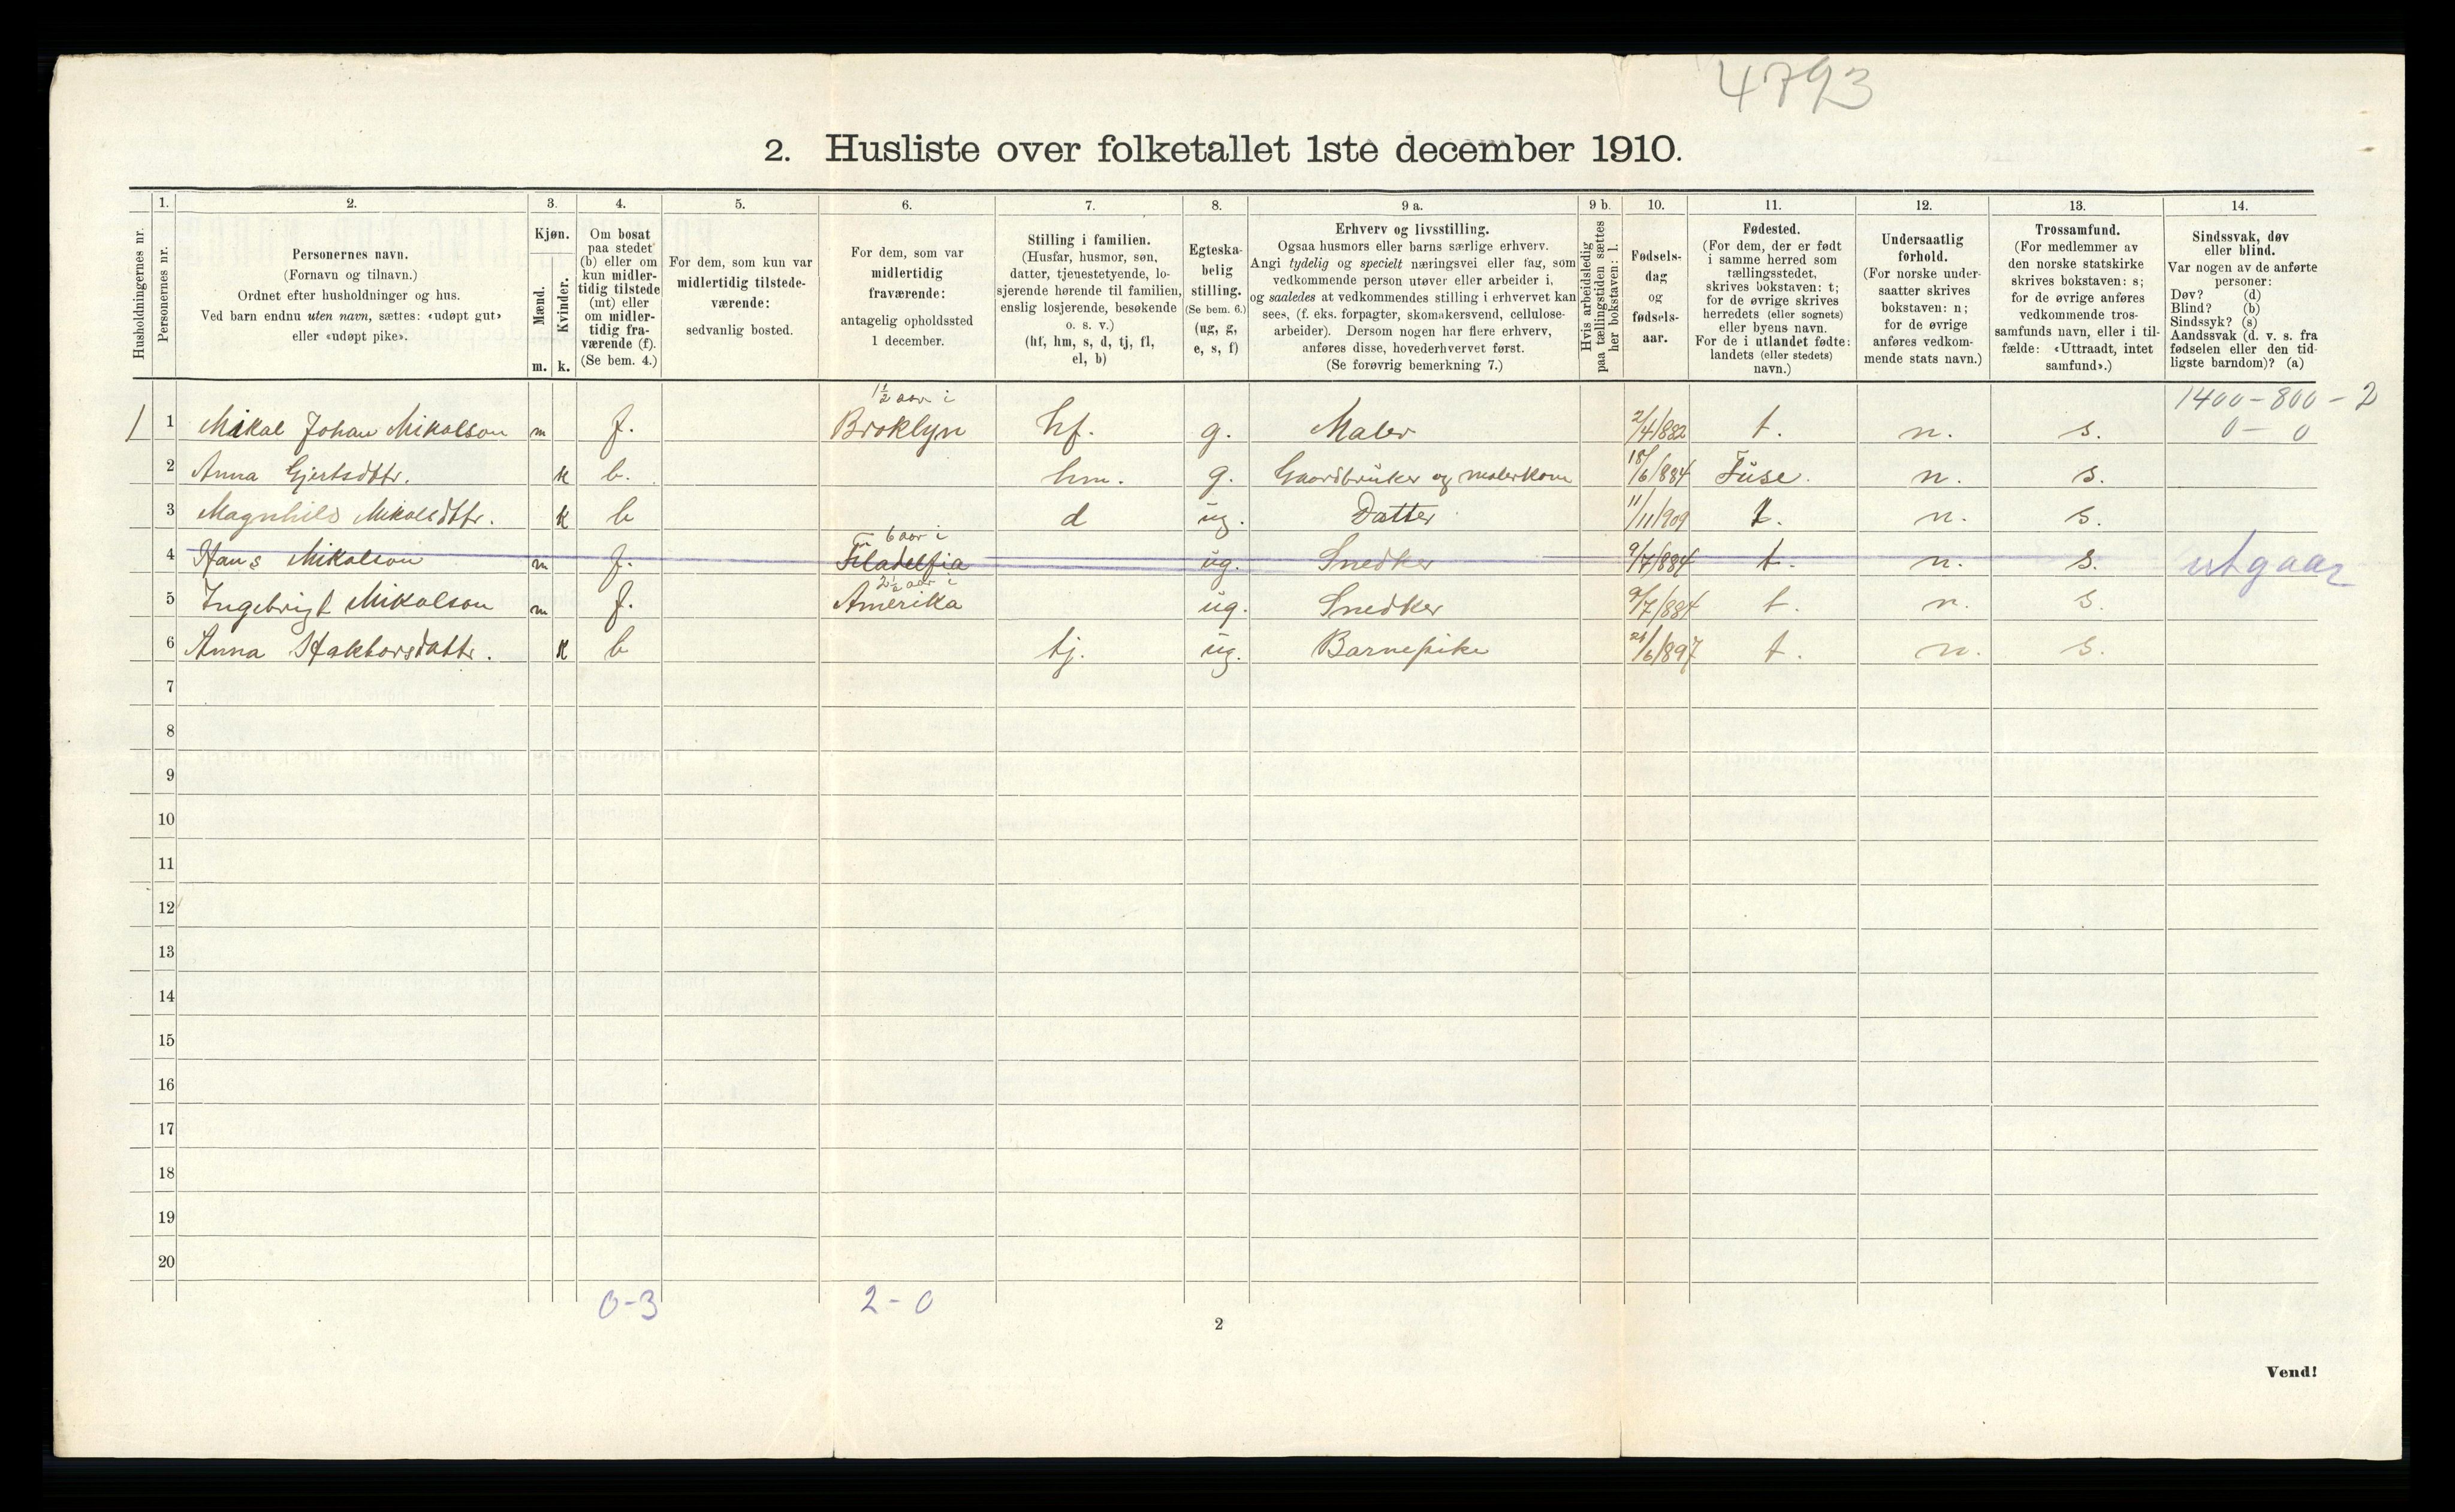 4793
2. Husliste over folketallet 1ste december 1910.
Husholdningernes nr.
1. Personernes nr.
2. Personernes navn. (Fornavn og tilnavn.) Ordnet efter husholdninger og hus. Ved barn endnu uten navn, sættes: «udøpt gut» eller «udøpt pike».
3. Kjøn. Mænd. m. Kvinder. k.
4. Om bosat paa stedet (b) eller om kun midlertidig tilstede (mt) eller om midlertidig fraværende (f). (Se bem. 4.)
5. For dem, som kun var midlertidig tilstedeværende: sedvanlig bosted.
6. For dem, som var midlertidig fraværende: antagelig opholdssted 1 december.
7. Stilling i familien. (Husfar, husmor, søn, datter, tjenestetyende, losjerende hørende til familien, enslig losjerende, besøkende o. s. v.) (hf, hm, s, d, tj, fl, el, b)
8. Egteskabelig stilling. (Se bem. 6.) (ug, g, e, s, f)
9 a. Erhverv og livsstilling. Ogsaa husmors eller barns særlige erhverv. Angi tydelig og specielt næringsvei eller fag, som vedkommende person utøver eller arbeider i, og saaledes at vedkommendes stilling i erhvervet kan sees, (f. eks. forpagter, skomakersvend, cellulosearbeider). Dersom nogen har flere erhverv, anføres disse, hovederhvervet først. (Se forøvrig bemerkning 7.)
9 b. Hvis arbeidsledig paa tællingstiden sættes her bokstaven: l.
10. Fødselsdag og fødselsaar.
11. Fødested. (For dem, der er født i samme herred som tællingsstedet, skrives bokstaven: t; for de øvrige skrives herredets (eller sognets) eller byens navn. For de i utlandet fødte: landets (eller stedets) navn.)
12. Undersaatlig forhold. (For norske undersaatter skrives bokstaven: n; for de øvrige anføres vedkommende stats navn.)
13. Trossamfund. (For medlemmer av den norske statskirke skrives bokstaven: s; for de øvrige anføres vedkommende trossamfunds navn, eller i tilfælde: «Uttraadt, intet samfund».)
14. Sindssvak, døv eller blind. Var nogen av de anførte personer: Døv? (d) Blind? (b) Sindssyk? (s) Aandssvak (d. v. s. fra fødselen eller den tidligste barndom)? (a)
1 1/2 aar i 1400-800-2
1 1 Mikal Johan Mikalson m f. Broklyn hf. g. Maler 2/4/882 t. n. s. 0-0
2 Anna Gjertsdttr. k b. hm. g. Gaardbruker og malerkone 18/6/884 Fuse. n. s.
3 Magnhild Mikalsdttr. k b d ug. Datter 11/11/909 t. n. s.
6 aar i
4 Hans Mikalson m f. Filadelfia ug. Snedker 9/7/884 t. n. s. utgaar
2 1/2 aar i
5 Ingebrigt Mikalson m f. Amerika ug. Snedker 9/7/884 t. n. s.
6 Anna Haktorsdattr. k b tj. ug. Barnepike 21/6/897 t. n. s.
7
8
9
10
11
12
13
14
15
16
17
18
19
20
0-3 2-0
2
Vend!